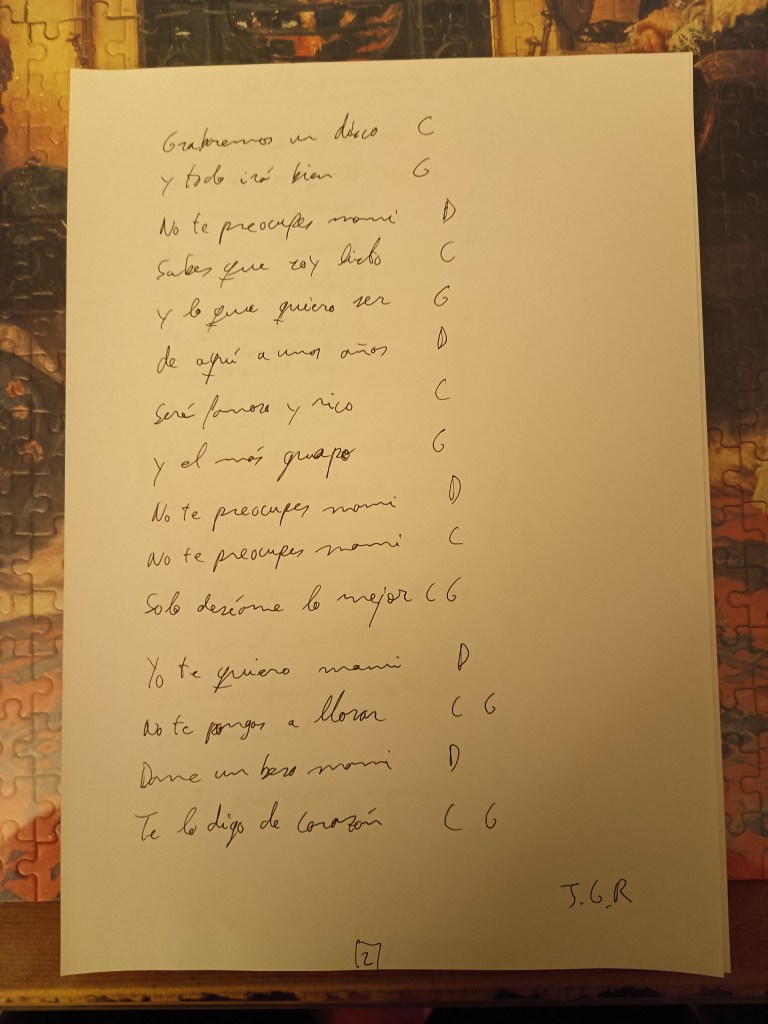 Grabaremos un disco C
y todo irá bien G
No te preocupes mami D
Sabes que soy listo C
y lo que quiero ser G
de aquí a unos años D
Seré famoso y rico C
y el más guapo G
No te preocupes mami D
No te preocupes mami C
Solo deséame lo mejor C G
Yo te quiero mami D
No te pongas a llorar C G
Dame un beso mami D
Te lo digo de corazón C G
J.G.R
2